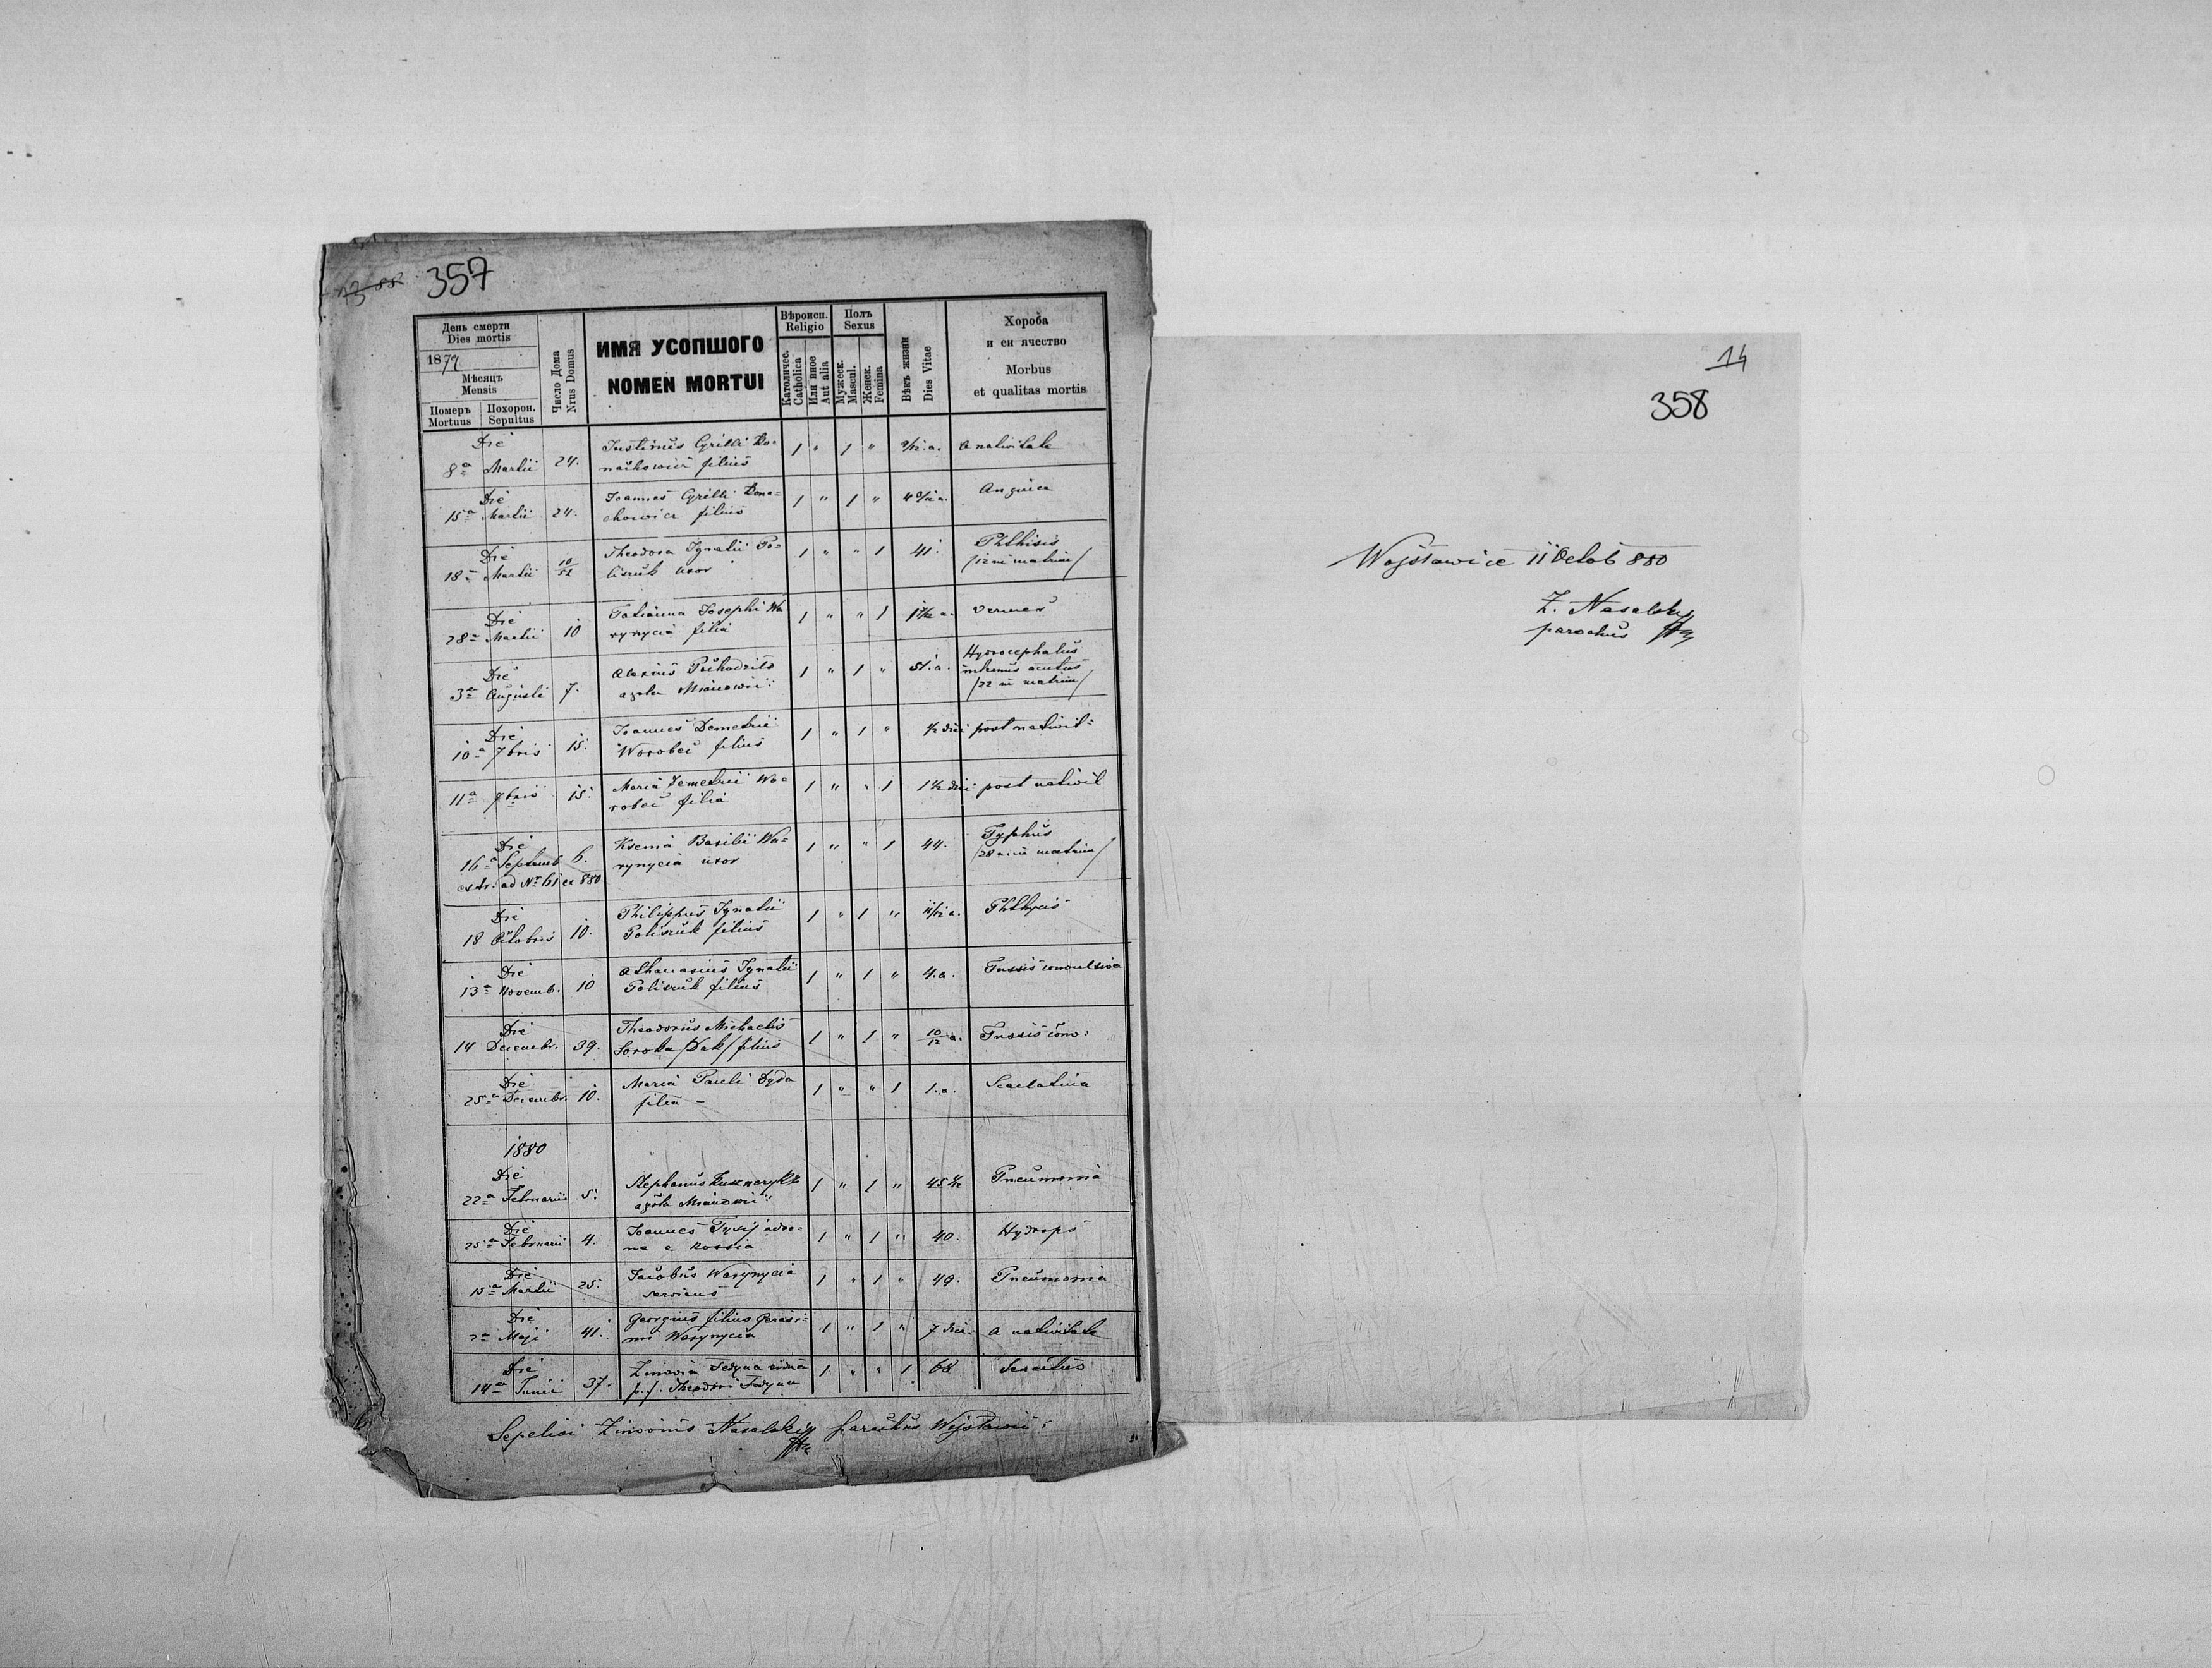 357
День смерти
Dies mortis
1879
Мѣсяцъ
Mensis
Померъ Mortuus
Похорон. Sepultus
Число Дома
Nrus Domus
ИМЯ УСОПШОГО
NOMEN MORTUI
Вѣроисп.
Religio
Католичес.
Catholica
Или иное
Aut alia
Полъ
Sexus
Мужеск.
Mascul.
Женск.
Femina
Вѣкъ жизни
Dies Vitae
Хороба
и еи ячество
Morbus
et qualitas mortis
Die
8ª Martii 24. Justinus Cyrilli
filius 1 " 1 " a nativitate
Die
15ª Martii 24. Joannes Cyrilli Dona=
chowicz filius 1 " 1 " Angina
Die
18ª Martii Theodora Ignatii Po=
liszuk uxor 1 " " 1 41. Phthisis
/12 in matrim/
Die
28ª Martii 10 Tatianna Josephi Wa
rynycia filia 1 " " 1 Vermes
Die
3ª Augusti 7. Alexius
1 " 1 " 51. a. Hydrocephalus
internus acutus
/22 in matrim/
Die
10ª 7bris 15. Joannes Demetrii
Worobei filius 1 " 1 " ½ diei post nativit=
11ª 7bris 15. Maria Demetrii Wo=
robei filia 1 " " 1 1½ diei post nativit
Die
16ª Septemb 6. Ksenia Basilii Wa=
rynycia uxor 1 " " 1 44. Typhus
/28 in matrim/
ad Nr 61 ex 880
Die
18 Octobris 10. Philippus Ignatii
Poliszuk filius 1 " 1 " 11/12 a. Phthysis
Die
13ª Novemb. 10 Athanasius Ignatii
Poliszuk filius 1 " 1 " 4. a. Tussis convulsiva
Die
14 Decembr. 39. Theodorus Michaelis
Soroka /Dak/ filius 1 " 1 " 10/12 a. Tussis conv:
Die
25ª Decembr. 10. Maria Pauli Dyda
filia - 1 " " 1 1. a. Scarlatina
1880
Die
22ª Februarii 5. Stephanus
1 " 1 " Pneumonia
Die
25ª Februarii 4. Joannes adve=
na e Rossia 1 " 1 " 40. Hydrops
Die
15ª Martii 25. Jacobus Warynycia
serviens 1 " 1 " 49. Pneumonia
Die
2ª Maji 41. Georgius filius Gerasi=
mi Warynycia 1 " 1 " 7 diei. a nativitate
Die
14ª Junii 37. Zinovia Fedyna vidua
p. f. Theodori Fedyna 1 " " 1. 68 Senectus
Sepelivi Zinovius Nasalsky parochus
14
358
Wojsławice 11 Octob 880
Z. Nasalsky
parochus